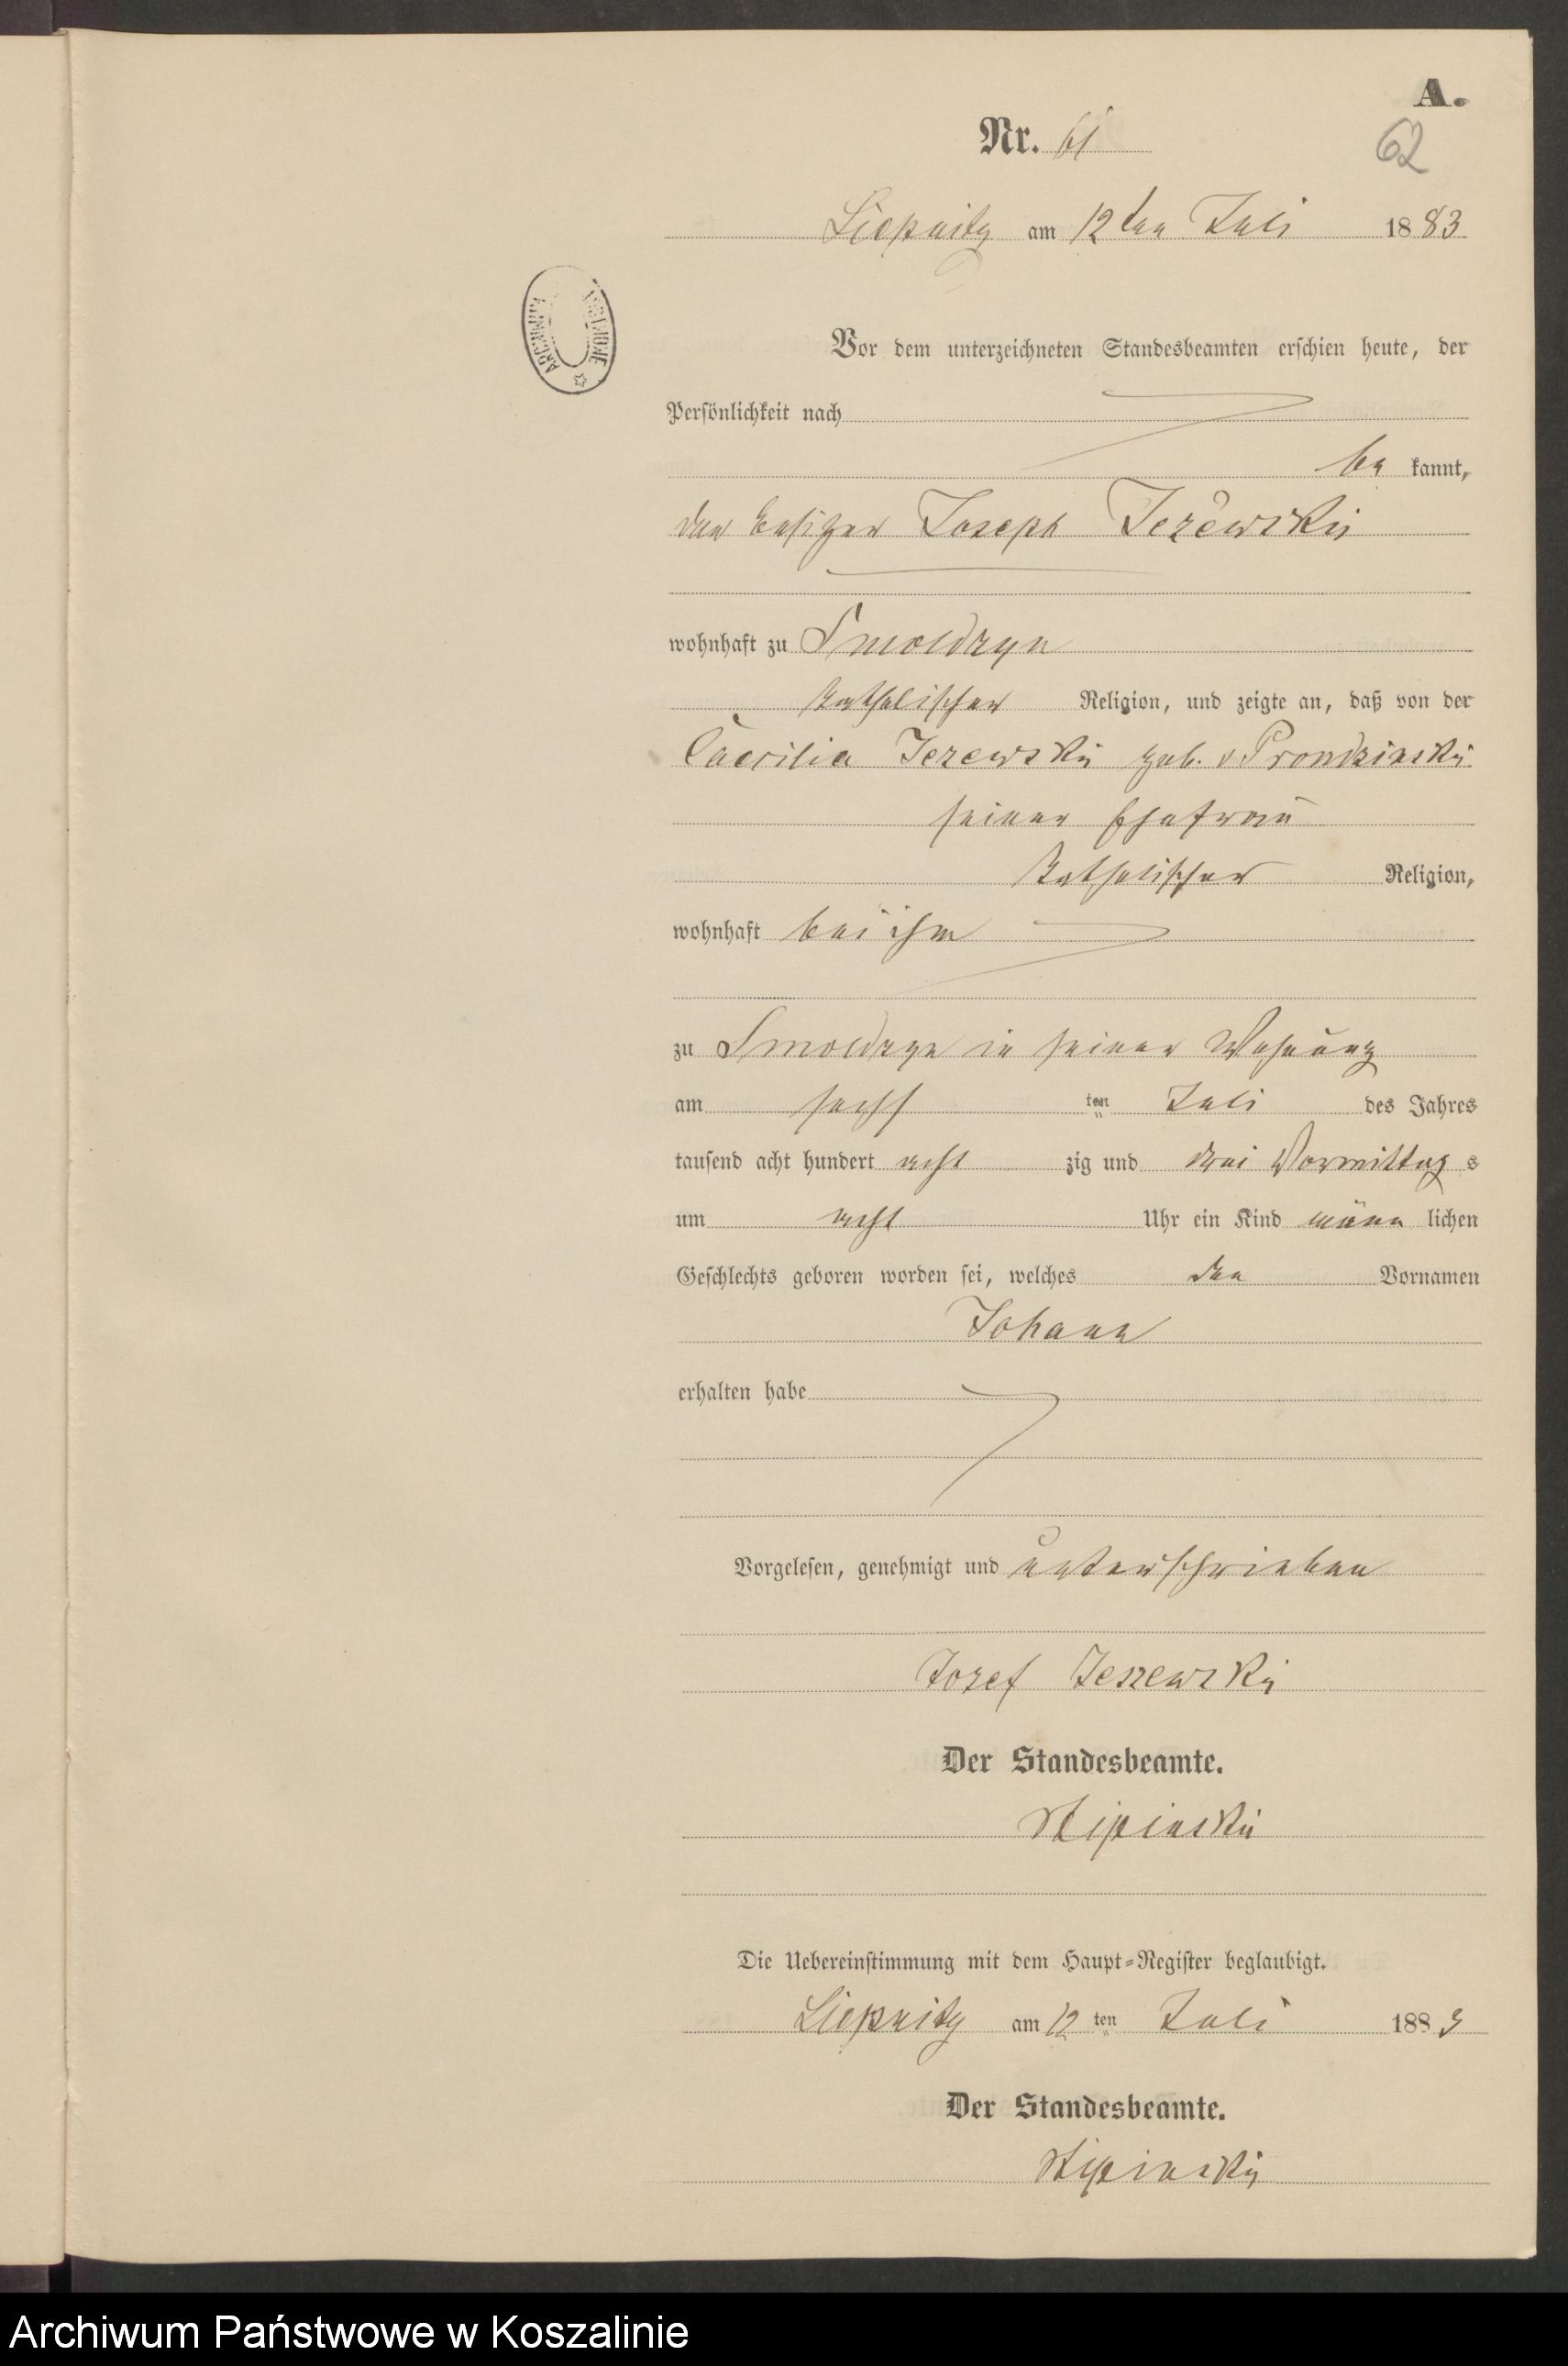 A.
Nr. 61
62
Liepnitz am 12ten Juli 1883
Vor dem unterzeichneten Standesbeamten erschien heute, der
Persönlichkeit nach
be kannt,
der Besitzer Joseph Jezewski
wohnhaft zu Smoldzyn
katholischer Religion, und zeigte an, daß von der
Caecilia Jezewski geb. v Prondzinski
seiner Ehefrau
katholischer Religion,
wohnhaft bei ihm
zu Smoldzyn in seiner Wohnung
am sechs ten Juli des Jahres
tausend acht hundert acht zig und drei Vormittag s
um acht Uhr ein Kind männ lichen
Geschlechts geboren worden sei, welches den Vornamen
Johann
erhalten habe
Vorgelesen, genehmigt und unterschrieben
Josef Jeszewski
Der Standesbeamte.
Die Uebereinstimmung mit dem Haupt-Register beglaubigt.
Liepnitz am 12 ten Juli 1883
Der Standesbeamte.
Archiwum Państwowe w Koszalinie